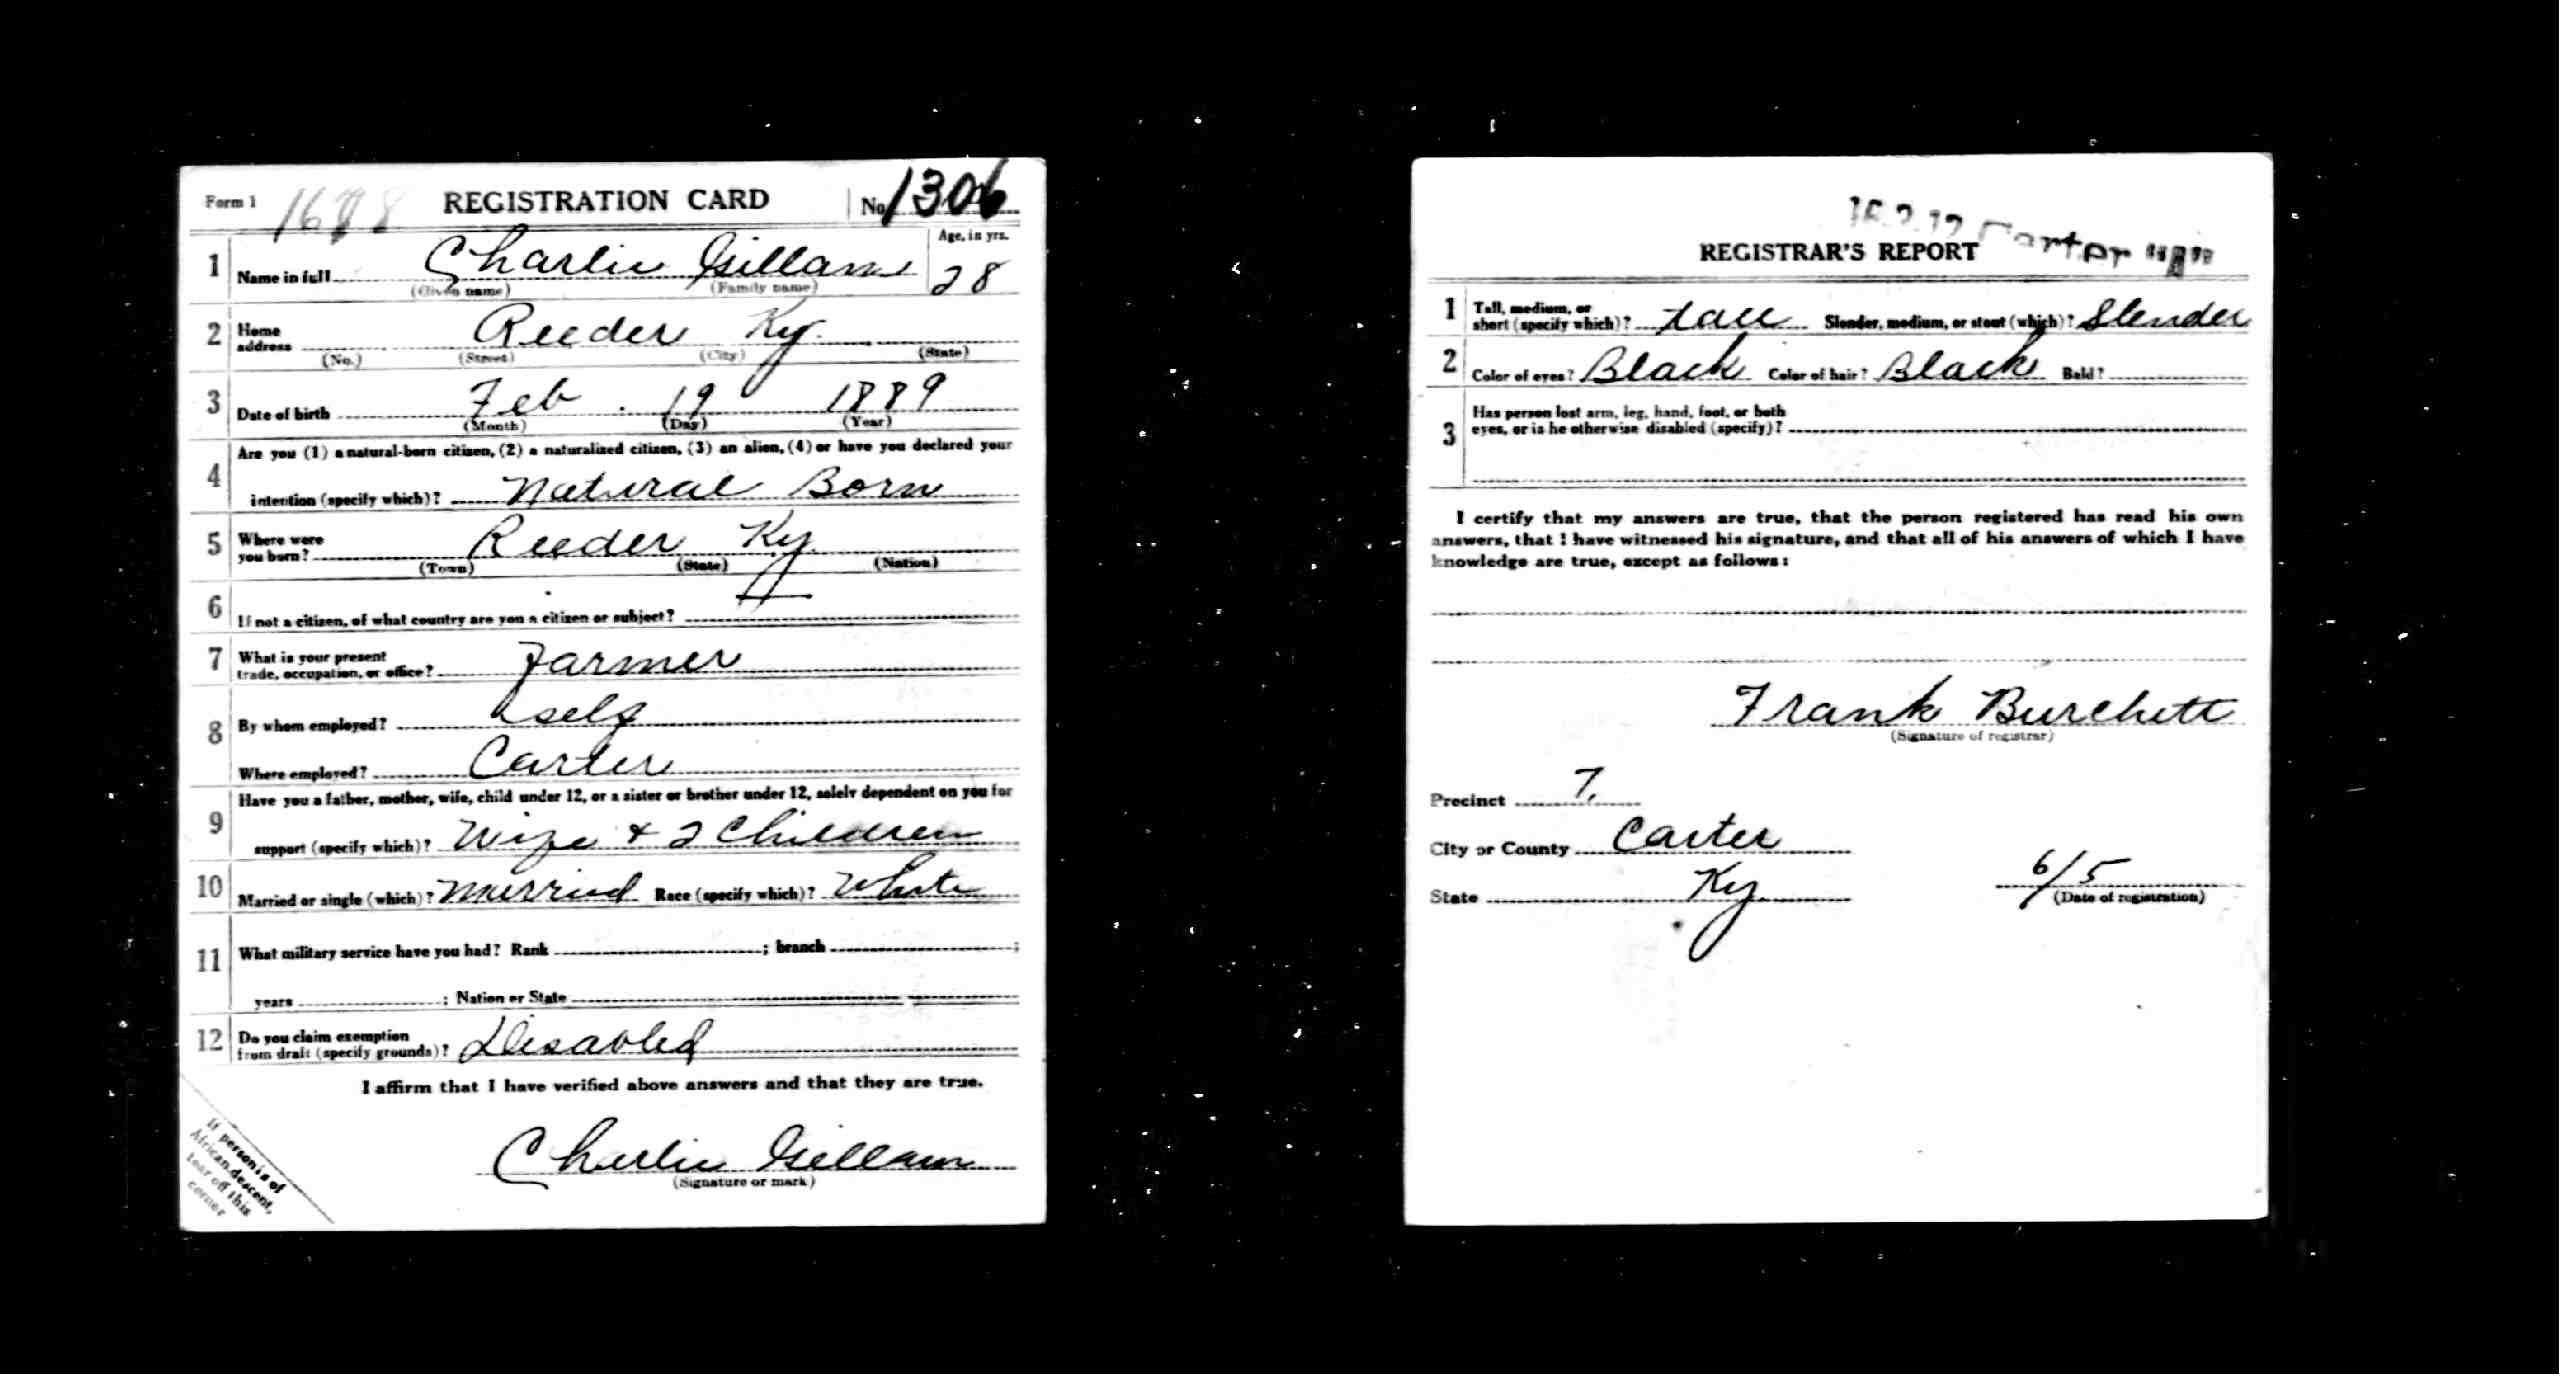 Form 1 REGISTRATION CARD No. 1306
1 Name in full Charlie Gillam Age, in yrs. 28
(Given name) (Family name)
2 Home address Reeder Ky.
(No.) (Street) (City) (State)
3 Date of birth Feb. 19 1889
(Month) (Day) (Year)
Are you (1) a natural-born citizen, (2) a naturalized citizen, (3) an alien, (4) or have you declared your
4 intention (specify which)? Natural Born
5 Where were you born? Reeder Ky.
(Town) (State) (Nation)
6 If not a citizen, of what country are you a citizen or subject?
7 What is your present trade, occupation, or office? Farmer
8 By whom employed? self
Where employed? Carter
Have you a father, mother, wife, child under 12, or a sister or brother under 12, solely dependent on you for
9 support (specify which)? Wife + 2 Children
10 Married or single (which)? Merried Race (specify which)? White
11 What military service have you had? Rank ; branch ;
years ; Nation or State
12 Do you claim exemption from draft (specify grounds)? Disabled
I affirm that I have verified above answers and that they are true.
Charlie Gillam
(Signature or mark)
If person is of
African descent,
tear off this
corner
Carter
REGISTRAR'S REPORT
1 Tall, medium, or short (specify which)? tall Slender, medium, or stout (which)? Slender
2 Color of eyes? Black Color of hair? Black Bald?
3 Has person lost arm, leg, hand, foot, or both
eyes, or is he otherwise disabled (specify)?
I certify that my answers are true, that the person registered has read his own
answers, that I have witnessed his signature, and that all of his answers of which I have
knowledge are true, except as follows:
Frank Burchett
(Signature of registrar)
Precinct 7.
City or County Carter
State Ky 6/5
(Date of registration)